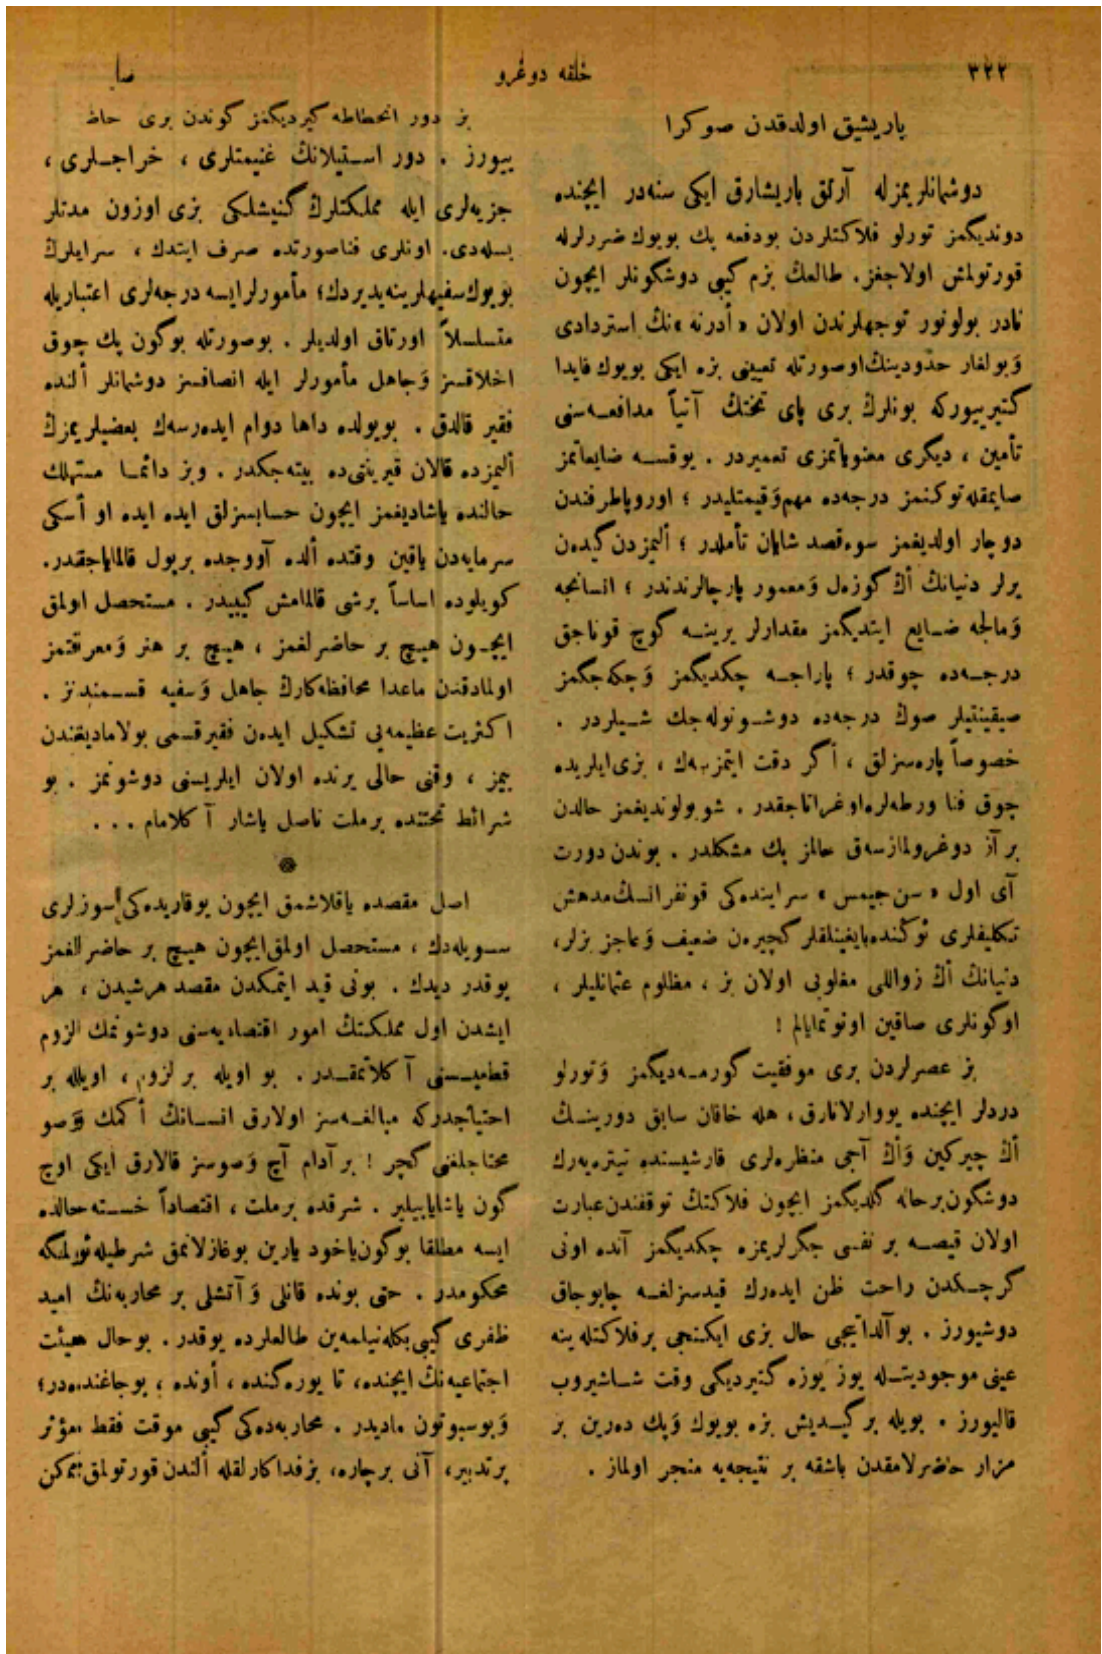 ٣٢٢
خلقه دوغرو
صا
یاریشیق اولدقدن صوكرا
دوشمانلریمزله آرتق باریشارق ایكی سنه‌در ایچنده
دوندیگمز تورلو فلاكتلردن بودفعه پك بویوك ضررلرله
قورتولمش اولاجغز. طالعڭ بزم كیبی دوشگونلر ایچون
نادر بولونور توجهلرندن اولان «أدرنه»نڭ استردادی
وَبولغار حدودینڭ اوصورتله تعیینی بزه ایكی بویوك فایدا
كتیرییوركه بونلرڭ بری پای تختڭ آتیاً مدافعه‌سنی
تأمین ، دیگری معنویاتمزی تعمیردر . یوقسه ضایعاتمز
صایمقله توكنمز درجه‌ده مهم وَقیمتلیدر ؛ اوروپاطرفندن
دوچار اولدیغمز سوء‌قصد شایان تأملدر ؛ ألیمزدن گیده‌ن
یرلر دنیانڭ أڭ كوزه‌ل وَمعمور پارچالرندندر ؛ انسانجه
وَمالجه ضایع ایتدیگمز مقدارلر یرینه گوچ قوناجق
درجه‌ده چوقدر ؛ پاراجه چكدیگمز وَچكه‌جگمز
صیقینتیلر صوڭ درجه‌ده دوشونوله‌جك شیلردر .
خصوصاً پاره‌سزلق ، أگر دقت ایتمزسه‌ك ، بزی ایلریده
چوق فنا ورطه‌لره‌اوغراتاجقدر . شوبولوندیغمز حالدن
بر آز دوغرولمازسه‌ق حالمز پك مشكلدر . بوندن دورت
آی اول «سن جیمس» سراینده‌كی قونفرانسڭ مدهش
تكلیفلری ئوگنده‌بایغینلقلر كچیره‌ن ضعیف وَعاجز بزلر،
دنیانڭ أڭ زواللی مغلوبی اولان بز ، مظلوم عثمانلیلر ،
اوگونلری صاقین اونوتمایالم !
بز عصرلردن بری موفقیت گورمه‌دیگمز وَتورلو
دردلر ایچنده یووارلانارق، هله خاقان سابق دورینڭ
أڭ چیركین وَأڭ آجی منظره‌لری قارشیسنده تیتره‌یه‌رك
دوشگون‌برحاله گلدیگمز ایچون فلاكتڭ توقفندن‌عبارت
اولان قیصه بر نفسی جگرلریمزه چكدیگمز آنده اونی
گرچكدن راحت ظن ایده‌رك قیدسزلغه چابوجاق
دوشیورز . بو آلداتیجی حال بزی ایكنجی برفلاكتله ینه
عینی موجودیتله یوز یوزه گتیردیگی وقت شاشیروب
قالیورز . بویله بر گیدیش بزه بویوك وَپك ده‌رین بر
مزار حاضرلامقدن باشقه بر نتیجه‌یه منجر اولماز .
بز دور انحطاطه گیردیگمز گوندن بری حاضـ
ییورز . دور استیلانڭ غنیمتلری ، خراجلری ،
جزیه‌لری ایله مملكتلرڭ گنیشلكی بزی اوزون مدتلر
بسله‌دی. اونلری فناصورتده صرف ایتدك ، سرایلرڭ
بویوك سفیهلرینه‌یدیردك؛ مأمورلرایسه درجه‌لری اعتباریله
متسلسلاً اورتاق اولدیلر . بوصورتله بوگون پك چوق
اخلاقسز وَجاهل مأمورلر ایله انصافسز دوشمانلر ألنده
فقیر قالدق . بویولده داها دوام ایده‌رسه‌ك بعضیلریمزڭ
ألیمزده قالان قیرینتی‌ده بیته‌جكدر . وبز دائما مستهلك
حالنده یاشادیغمز ایچون حسابسزلق ایده ایده او أسكی
سرمایه‌دن یاقین وقتده ألده آووجده برپول قالمایاجقدر.
كویلوده اساساً برشی قالمامش گیبیدر . مستحصل اولمق
ایچون هیچ بر حاضرلغمز ، هیچ بر هنر وَمعرفتمز
اولمادقدن ماعدا محافظه‌كارڭ جاهل وَسفیه قسمندنز .
اكثریت عظیمه‌یی تشكیل ایده‌ن فقیرقسمی بولامادیغندن
ییمز ، وقتی حالی یرنده اولان ایلریسنی دوشونمز . بو
شرائط تحتنده برملت ناصل یاشار آكلامام . . .
اصل مقصده یاقلاشمق ایچون یوقاریده‌كی سوزلری
سویله‌دك ، مستحصل اولمق‌ایچون هیچ بر حاضرلغمز
یوقدر دیدك . بونی قید ایتمكدن مقصد هرشیدن ، هر
ایشدن اول مملكتڭ امور اقتصادیه‌سنی دوشونمك لزوم
قطعیسنی آكلاتمقدر. بو اویله بر لزوم ، اویله بر
احتیاجدركه مبالغه‌سز اولارق انسانڭ أكمك وَصو
محتاجلغنی گچر ! بر آدام آچ وَصوسز قالارق ایكی اوچ
گون یاشایابیلیر . شرقده برملت ، اقتصاداً خسته حالده
ایسه مطلقا بوگون‌یاخود یارین بوغازلانمق شرطیله ئولمگه
محكومدر . حتی بونده قانلی وَآتشلی بر محاربه‌نڭ امید
ظفری گیبی بكله‌نیلمه‌ین طالعلرده یوقدر . بوحال هیئت
اجتماعیه‌نڭ ایچنده، تا یوره‌گنده ، أونده ، بوجاغنده‌در؛
وَبوسبوتون مادیدر . محاربه‌ده‌كی گیبی موقت فقط مؤثر
برتدبیر، آنی برچاره، بزفداكارلقله ألندن قورتولمق ممكن